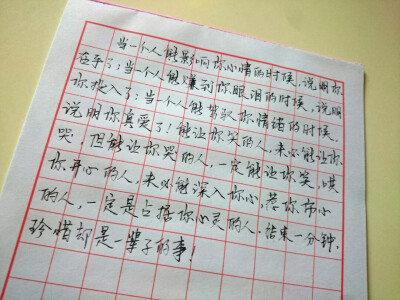 当一个人能影响你心情的时候，说明你
在乎了；当一个人能赚到你眼泪的时候，说明
你投入了；当一个人能驾驭你情绪的时候，
说明你真爱了！能让你笑的人，未必能让你
哭，但能让你哭的人，一定能让你笑，哄
你开心的人，未必能深入你心，惹你伤心
的人，一定是占据你心灵的人。结束一分钟，
珍惜却是一辈子的事！